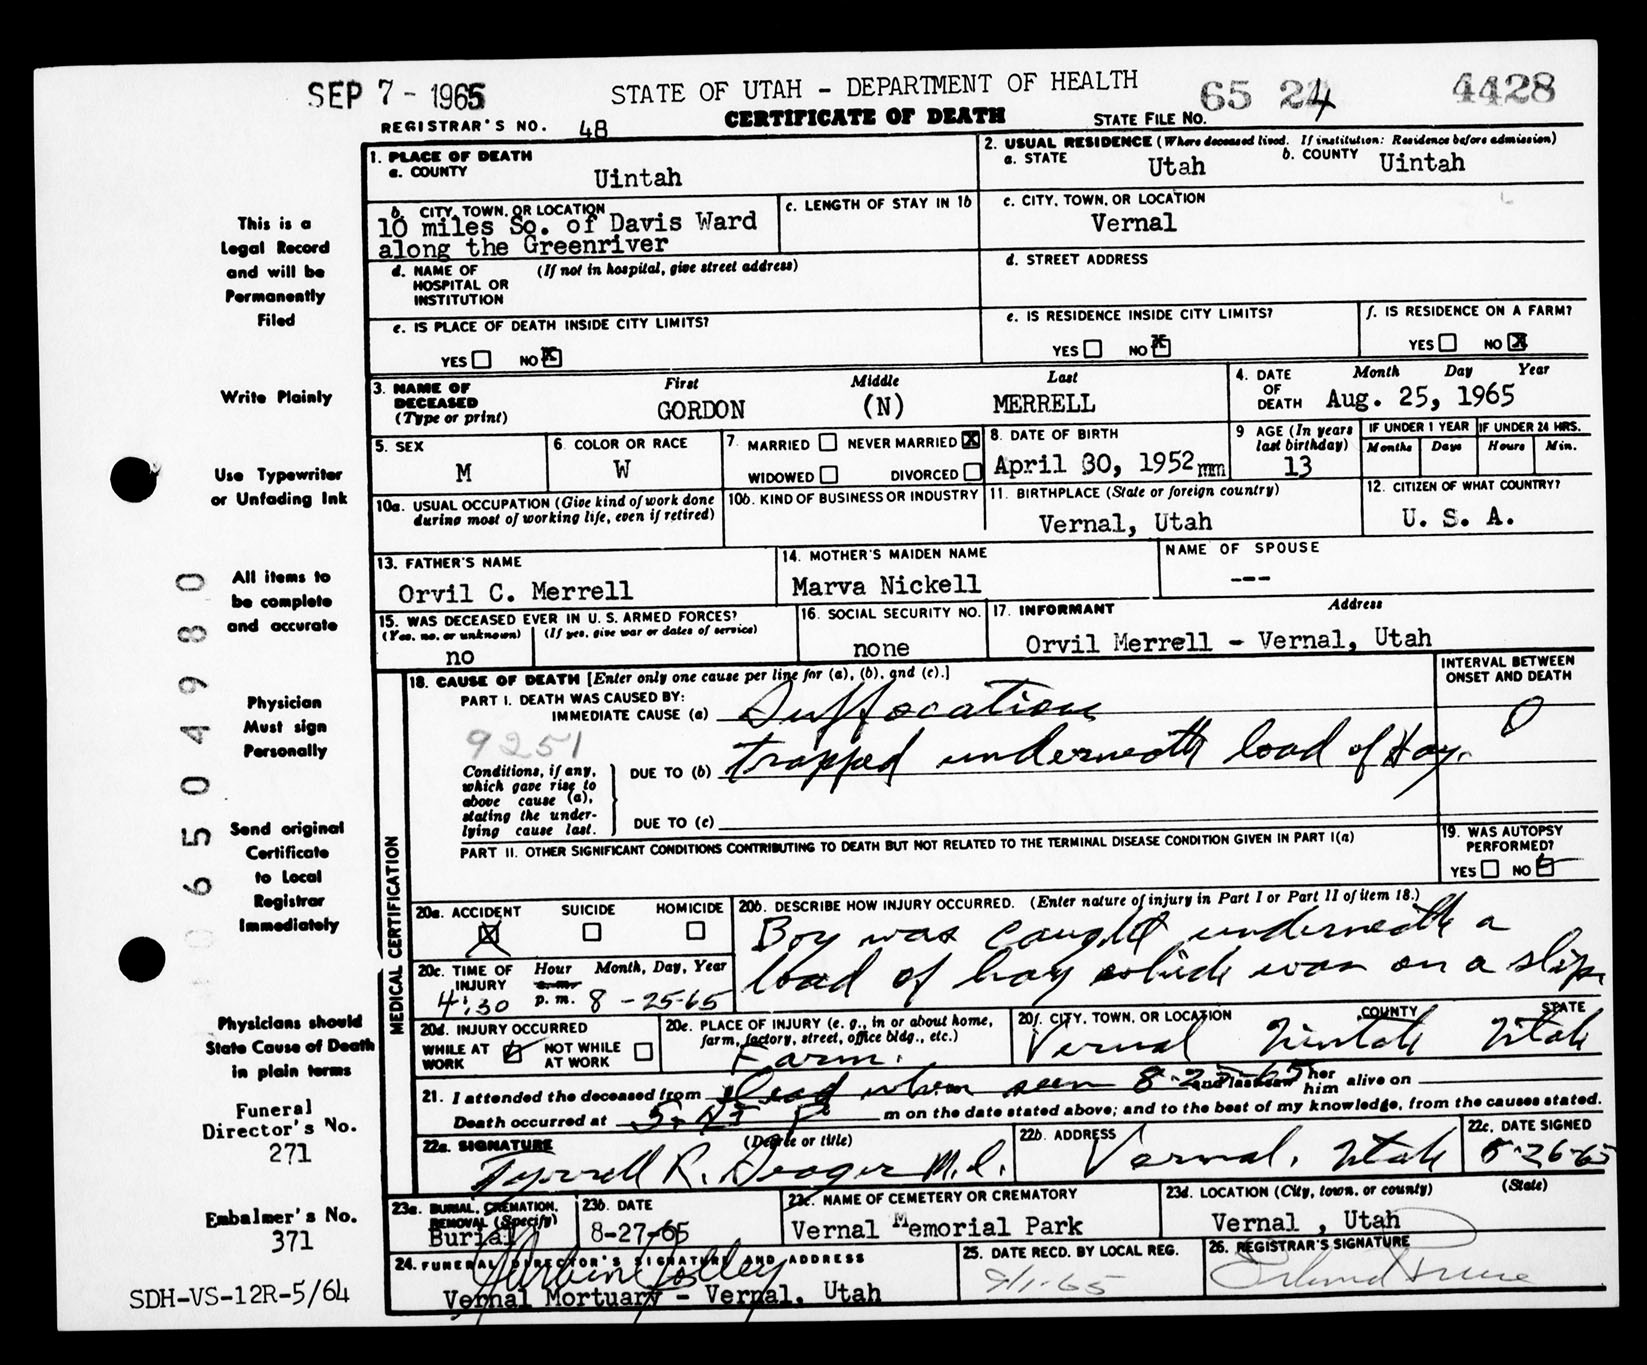 SEP 7 - 1965
STATE OF UTAH - DEPARTMENT OF HEALTH
65 24
4428
REGISTRAR'S NO. 48
CERTIFICATE OF DEATH
STATE FILE NO.
This is a
Legal Record
and will be
Permanently
Filed
Write Plainly
Use Typewriter
or Unfading Ink
All items to
be complete
and accurate
Physician
Must sign
Personally
Send original
Certificate
to Local
Registrar
Immediately
Physicians should
State Cause of Death
in plain terms
Funeral
Director's No.
271
Embalmer's No.
371
SDH-VS-12R-5/64
0 6 5 0 4 9 8 0
1. PLACE OF DEATH
a. COUNTY
Uintah
2. USUAL RESIDENCE (Where deceased lived. If institution: Residence before admission)
a. STATE Utah b. COUNTY Uintah
b. CITY, TOWN, OR LOCATION
10 miles So. of Davis Ward
along the Greenriver
c. LENGTH OF STAY IN 1b
c. CITY, TOWN, OR LOCATION
Vernal
d. NAME OF (If not in hospital, give street address)
HOSPITAL OR
INSTITUTION
d. STREET ADDRESS
e. IS PLACE OF DEATH INSIDE CITY LIMITS?
YES NO X
e. IS RESIDENCE INSIDE CITY LIMITS?
YES NO X
f. IS RESIDENCE ON A FARM?
YES NO X
3. NAME OF
DECEASED
(Type or print)
First Middle Last
GORDON (N) MERRELL
4. DATE
OF
DEATH
Month Day Year
Aug. 25, 1965
5. SEX
M
6. COLOR OR RACE
W
7. MARRIED NEVER MARRIED X
WIDOWED DIVORCED
8. DATE OF BIRTH
April 30, 1952 mm
9 AGE (In years
last birthday)
13
IF UNDER 1 YEAR IF UNDER 24 HRS.
Months Days Hours Min.
10a. USUAL OCCUPATION (Give kind of work done
during most of working life, even if retired)
10b. KIND OF BUSINESS OR INDUSTRY
11. BIRTHPLACE (State or foreign country)
Vernal, Utah
12. CITIZEN OF WHAT COUNTRY?
U. S. A.
13. FATHER'S NAME
Orvil C. Merrell
14. MOTHER'S MAIDEN NAME
Marva Nickell
NAME OF SPOUSE
---
15. WAS DECEASED EVER IN U. S. ARMED FORCES?
(Yes, no, or unknown) (If yes, give war or dates of service)
no
16. SOCIAL SECURITY NO.
none
17. INFORMANT Address
Orvil Merrell - Vernal, Utah
MEDICAL CERTIFICATION
18. CAUSE OF DEATH [Enter only one cause per line for (a), (b), and (c).]
INTERVAL BETWEEN
ONSET AND DEATH
PART I. DEATH WAS CAUSED BY:
IMMEDIATE CAUSE (a) Suffocation
0
9251
Conditions, if any,
which gave rise to
above cause (a),
stating the under-
lying cause last.
DUE TO (b) trapped underneath load of Hay.
DUE TO (c)
PART II. OTHER SIGNIFICANT CONDITIONS CONTRIBUTING TO DEATH BUT NOT RELATED TO THE TERMINAL DISEASE CONDITION GIVEN IN PART I(a)
19. WAS AUTOPSY
PERFORMED?
YES NO
20a. ACCIDENT SUICIDE HOMICIDE
X
20b. DESCRIBE HOW INJURY OCCURRED. (Enter nature of injury in Part I or Part II of item 18.)
Boy was caught underneath a
load of hay which was on a slip
20c. TIME OF Hour Month, Day, Year
INJURY a.m.
4:30 p. m. 8-25-65
20d. INJURY OCCURRED
WHILE AT NOT WHILE
WORK AT WORK
20e. PLACE OF INJURY (e. g., in or about home,
farm, factory, street, office bldg., etc.)
Farm.
20f. CITY, TOWN, OR LOCATION COUNTY STATE
Vernal Uintah Utah
21. I attended the deceased from dead when seen 8-25-65 and last saw her him alive on
Death occurred at m on the date stated above; and to the best of my knowledge, from the causes stated.
22a. SIGNATURE (Degree or title)
Tyrrell R. Seager M.D.
22b. ADDRESS
Vernal, Utah
22c. DATE SIGNED
8-26-65
23a. BURIAL, CREMATION,
REMOVAL (Specify)
Burial
23b. DATE
8-27-65
23c. NAME OF CEMETERY OR CREMATORY
Vernal Memorial Park
23d. LOCATION (City, town, or county) (State)
Vernal , Utah
24. FUNERAL DIRECTOR'S SIGNATURE AND ADDRESS
Vernal Mortuary - Vernal, Utah
25. DATE RECD. BY LOCAL REG.
9/1-65
26. REGISTRAR'S SIGNATURE